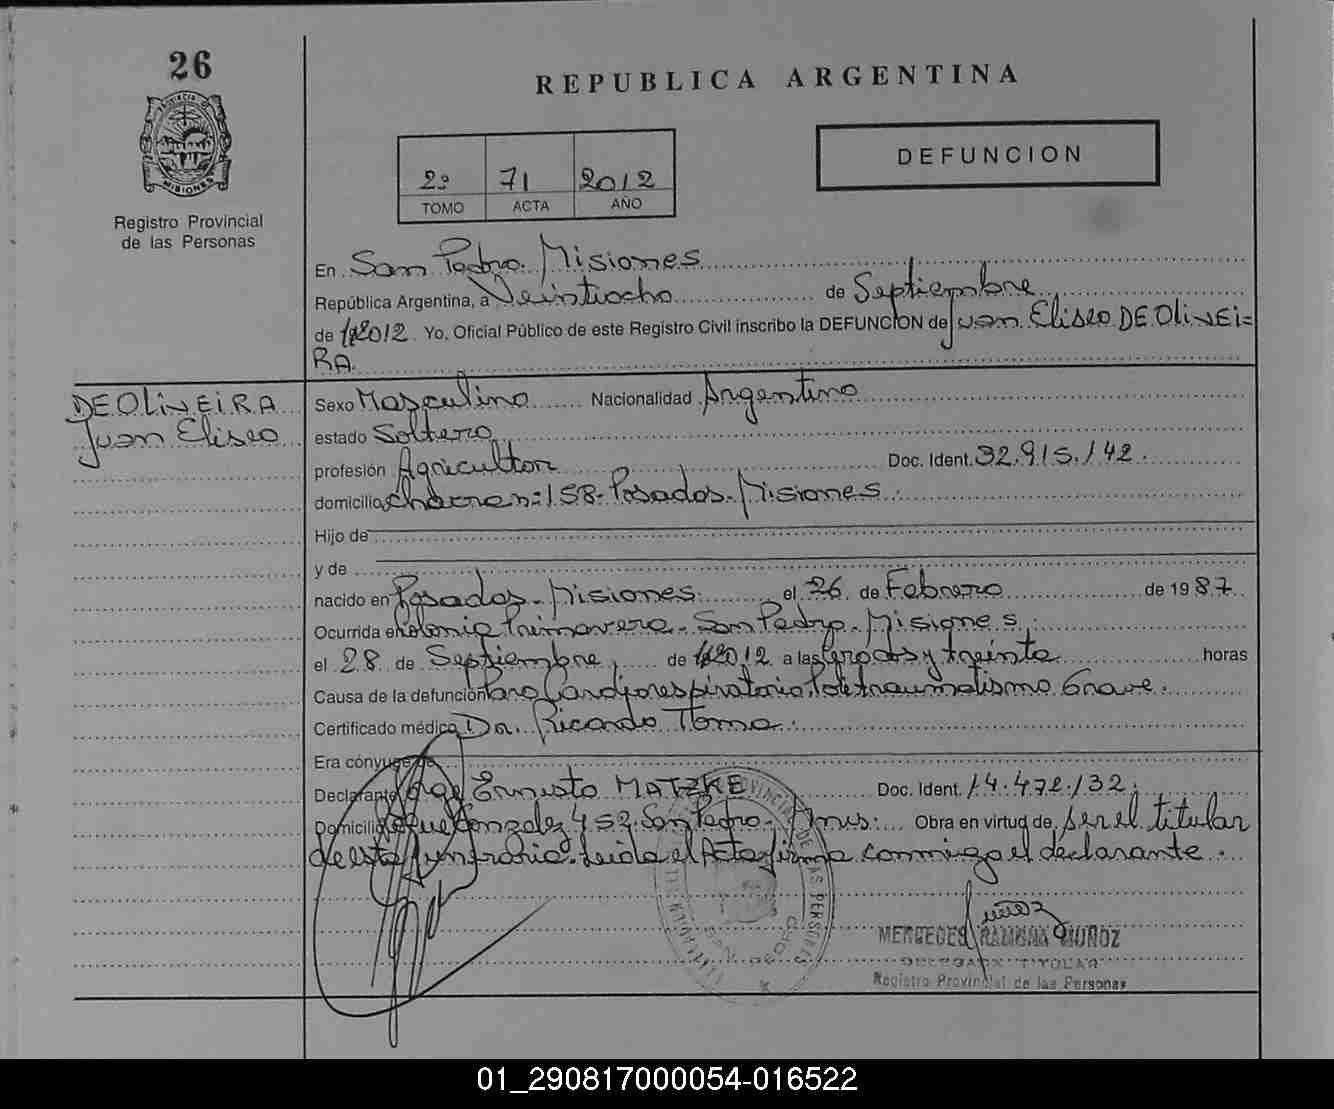 26
REPUBLICA ARGENTINA
PROVINCIA DE MISIONES
Registro Provincial
de las Personas
2º 71 2012
TOMO ACTA AÑO
DEFUNCION
En San Pedro. Misiones
República Argentina, a Veintiocho de Septiembre
de 2012 Yo, Oficial Público de este Registro Civil inscribo la DEFUNCION de Juan Eliseo DE OLIVEI=
RA.
DE OLIVEIRA
Juan Eliseo
Sexo Masculino Nacionalidad Argentino
estado Soltero
profesión Agricultor Doc. Ident. 32.915.142.
domicilio Chacra n: 158- Posadas- Misiones.
Hijo de
y de
nacido en Posadas- Misiones. el 26 de Febrero de 1987
Ocurrida en Colonia Primavera- San Pedro- Misiones.
el 28 de Septiembre de 2012 a las cero dos y treinta horas
Causa de la defunción Paro Cardiorespiratorio. traumatismo Grave.
Certificado médico Dr. Ricardo
Era cónyuge de
Declarante Jorge Ernesto MATZKE Doc. Ident. 14.472.132.
Domicilio Roque Gonzalez 452- San Pedro- Mnes: Obra en virtud de, ser el titular
de esta funeraria. Leida el Acta firma conmigo el declarante.
MERCEDES RAMONA MUÑOZ
DELEGADA TITULAR
Registro Provincial de las Personas
01_290817000054-016522